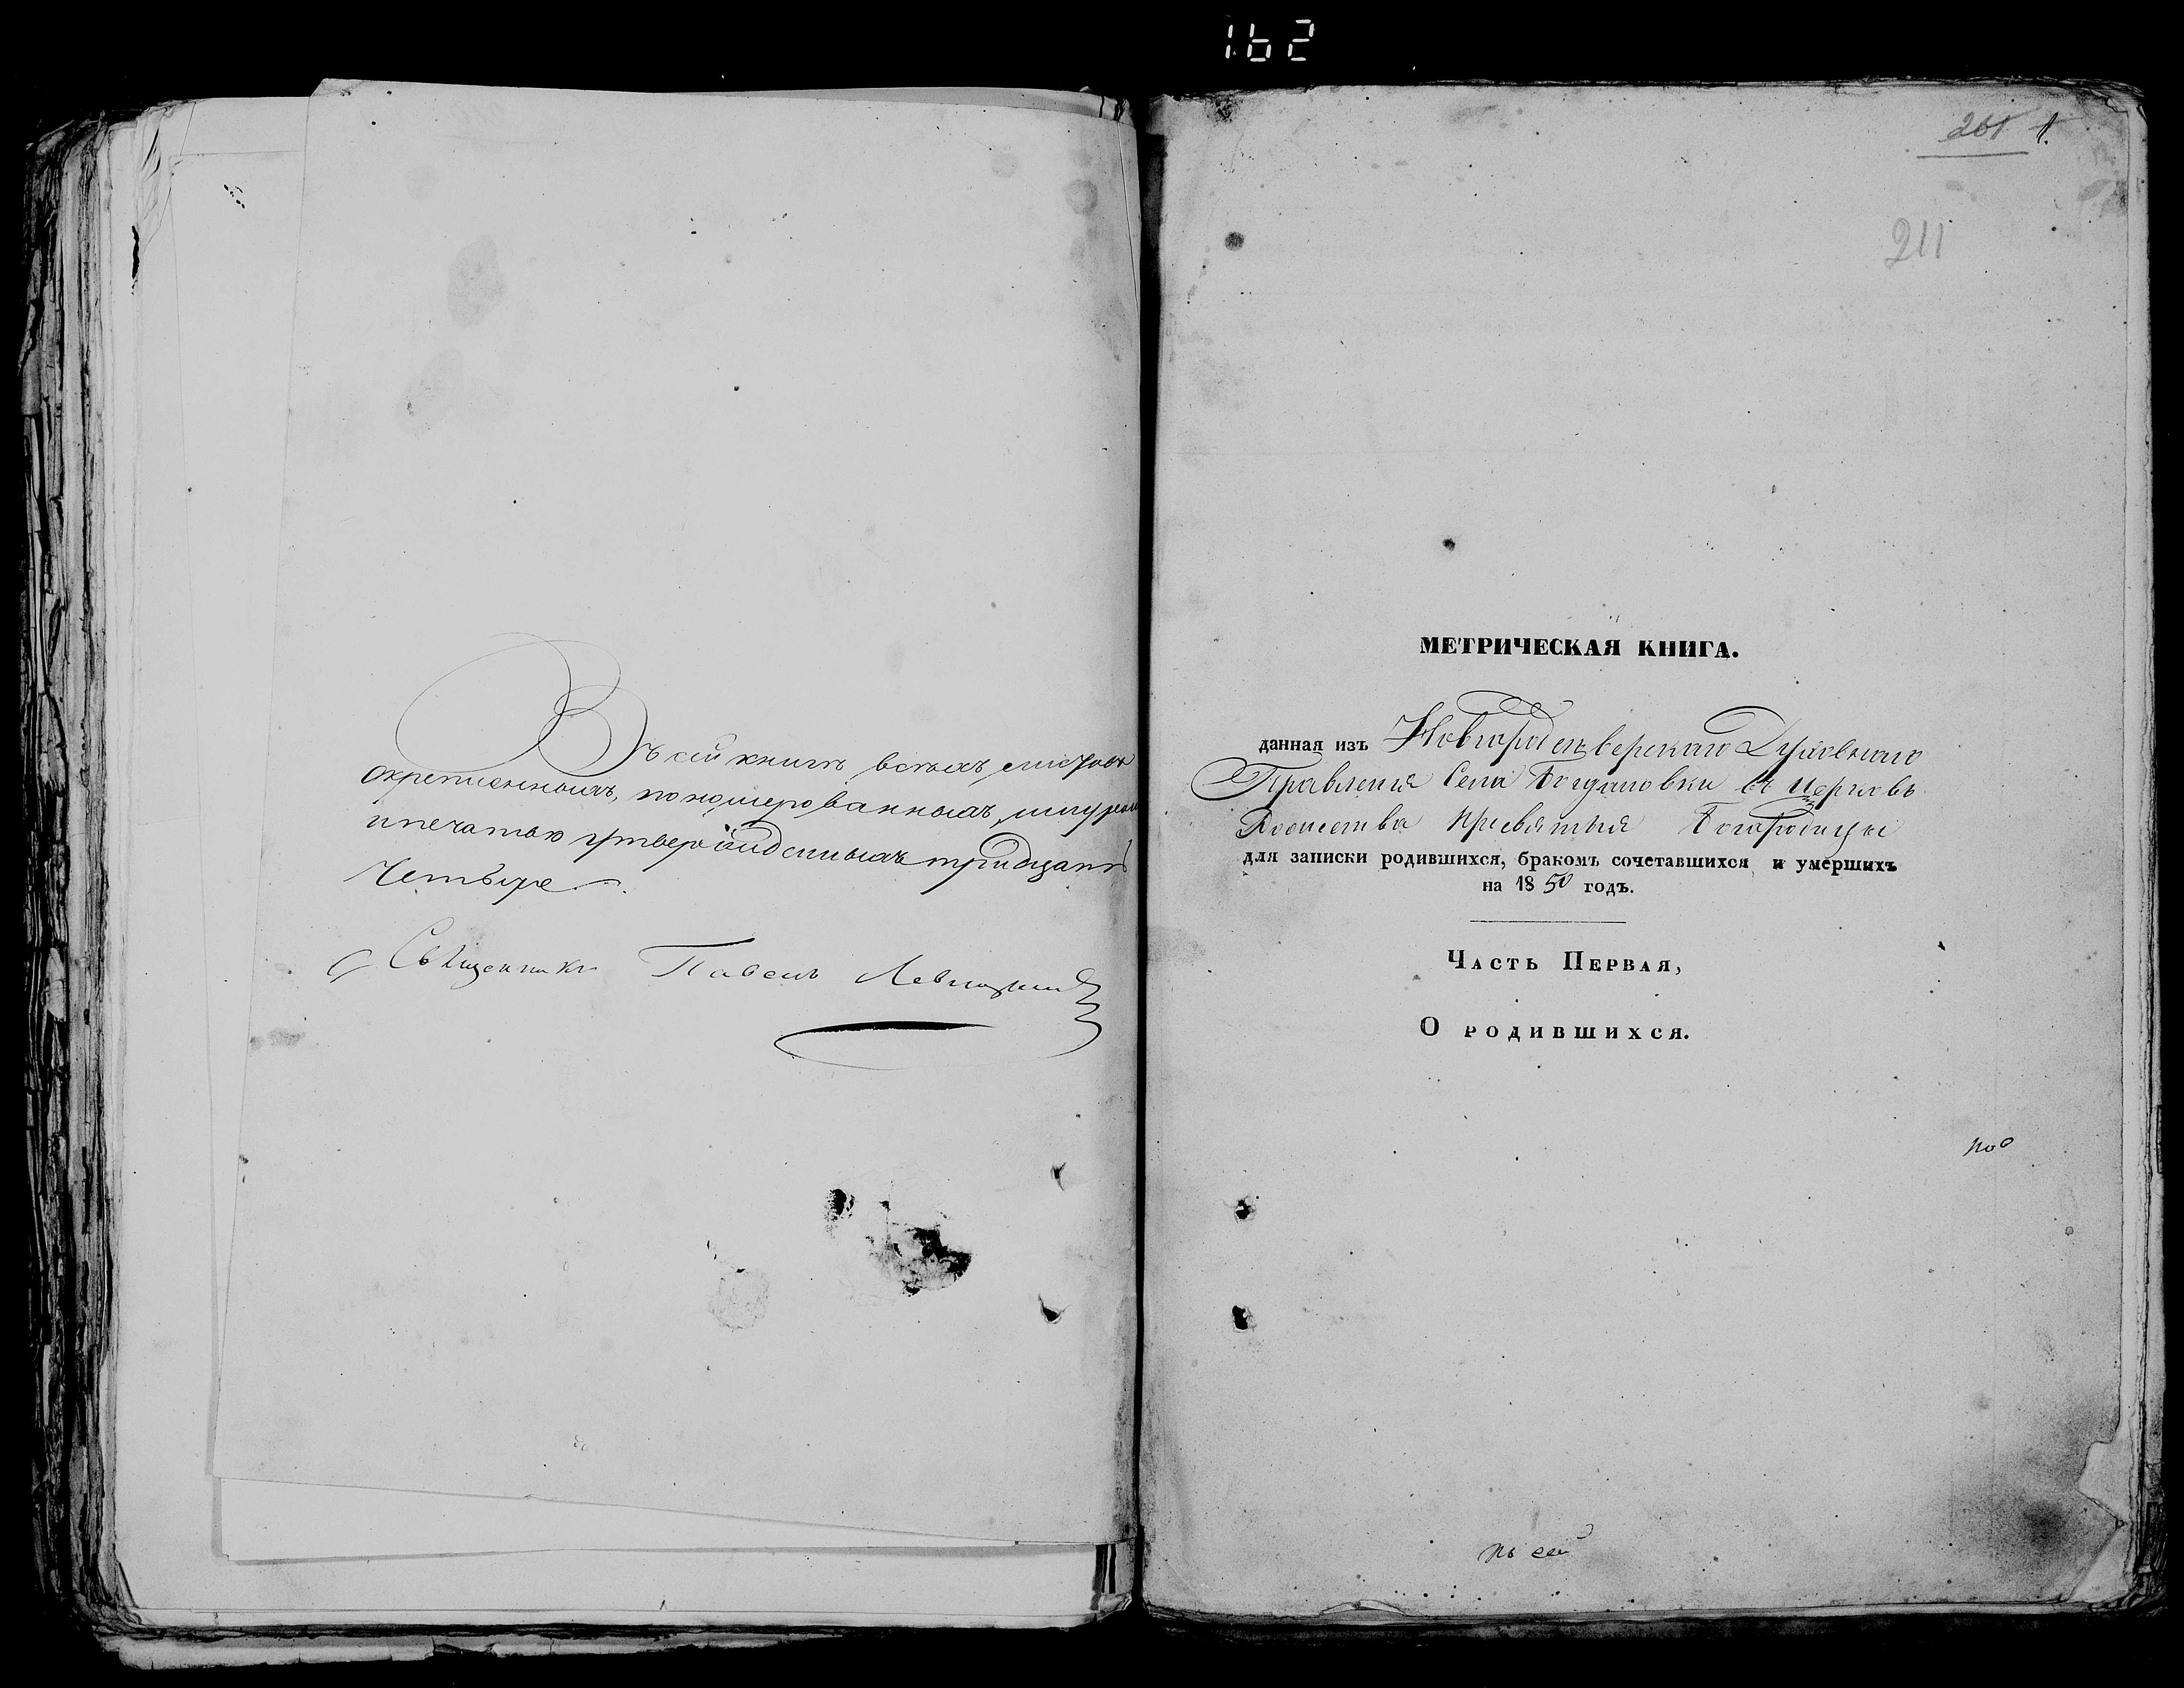 162
Въ сей книгѣ всѣхъ листовъ
скрепленныхъ, пономерованныхъ, шнуромъ
и печатью утвержденныхъ тридцать
четыре
Священникъ Павелъ Левицкий
261 1.
211
МЕТРИЧЕСКАЯ КНИГА.
данная изъ Новгородсѣверскаго Духовнаго
Правления Села Богдановки въ Церковь
Рождества Пресвятыя Богородицы
для записки родившихся, бракомъ сочетавшихся и умершихъ
на 1850 годъ.
Часть Первая,
О родившихся.
по